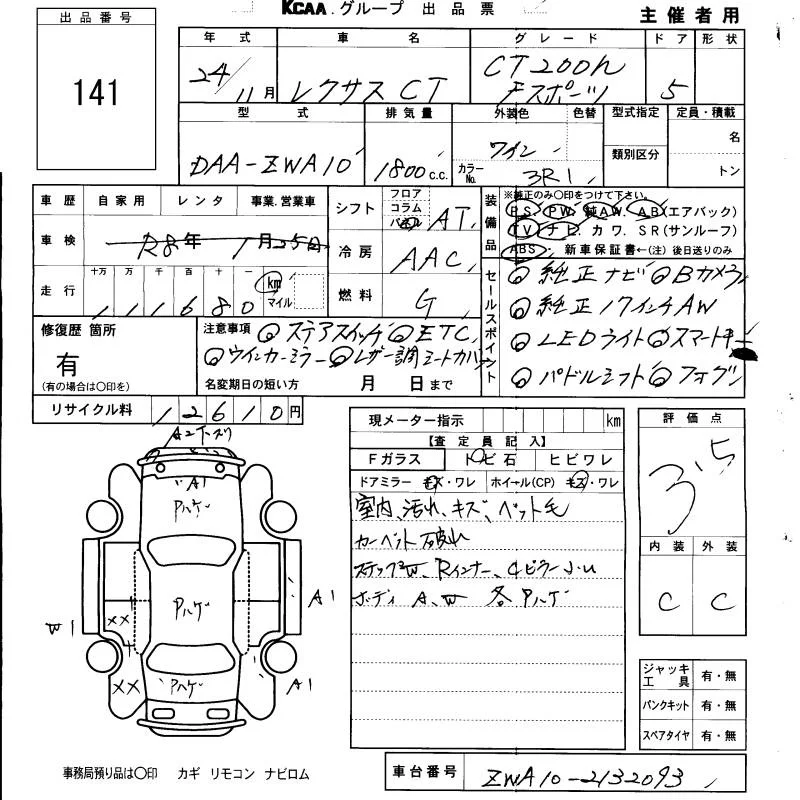 KCAA.グループ 出品票
主催者用
出品番号
141
年式 車名 グレード ドア 形状
24/11月 レクサス CT CT200h Fスポーツ 5
型式 排気量 外装色 色替 型式指定 定員・積載
DAA-ZWA10 1800c.c. ワイン 名
カラーNo. 3R1 類別区分 トン
車歴 自家用 レンタ 事業.営業車
シフト フロア コラム パネル AT
装備品 ※純正のみ○印をつけて下さい。
PS. PW. 純AW. AB(エアバック)
TV ナビ. カワ. SR(サンルーフ)
ABS・ 新車保証書←(注)後日送りのみ
車検 R8年 1月25日
冷房 AAC
走行 十万 万 千 百 十 一 km マイル
111680
燃料 G
セールスポイント
◎純正ナビ ◎Bカメラ
◎純正17インチAW
◎LEDライト ◎スマートキー
◎パドルシフト ◎フォグ
修復歴 箇所
有
(有の場合は○印を)
注意事項 ◎ステアスイッチ ◎ETC
◎ウインカーミラー ◎レザー調シートカバー
名変期日の短い方 月 日まで
リサイクル料 12610円
現メーター指示 km
評価点
3.5
【査定員記入】
Fガラス トビ石 ヒビワレ
ドアミラー キズ・ワレ ホイール(CP) キズ・ワレ
室内、汚れ、キズ、ペット毛
カーペット破れ
ステップW、Rインナー、Cピラー
ボディ A、W 各Pハゲ
内装 外装
C C
A1
Pハゲ
Pハゲ
A1
W1
××
××
Pハゲ
A1
ジャッキ工具 有・無
パンクキット 有・無
スペアタイヤ 有・無
事務局預り品は○印 カギ リモコン ナビロム
車台番号 ZWA10-2132093